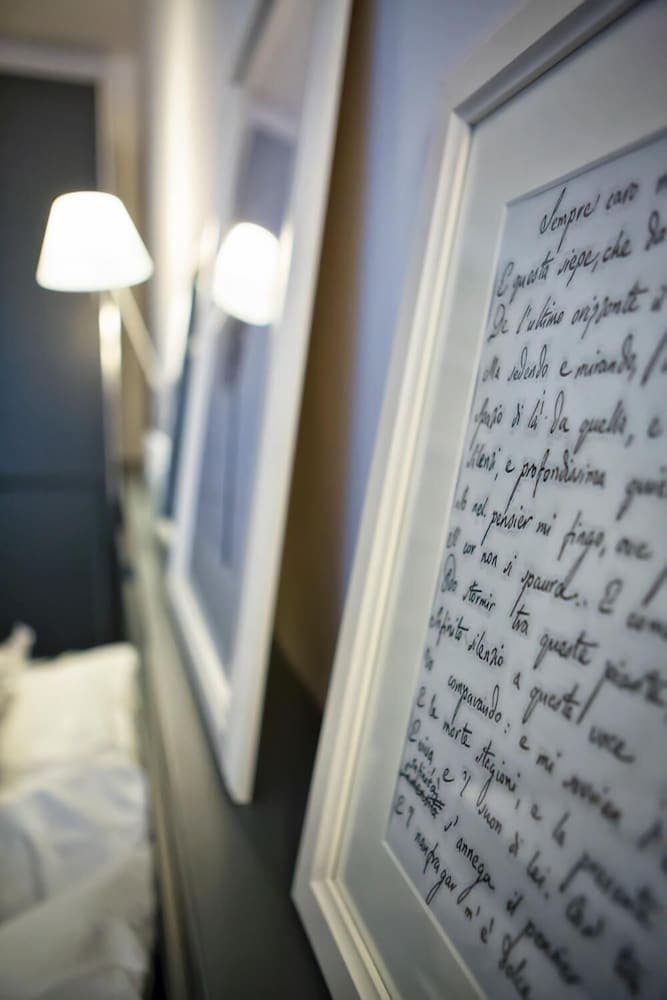 Sempre caro
E questa siepe, che da
De l'ultimo orizzonte
Ma sedendo e mirando, l'
Spazio di là da quella, e
silenzi, e profondissima qui
nel pensier mi fingo, ove p
cor non si spaura.. E com
stormir tra queste piante
infinito silenzio a questa voce
comparando: e mi sovvien
E le morte stagioni, e la presente
e 'l suon di lei. Così
s'annega il pensier
E 'l naufragar m'è dolce